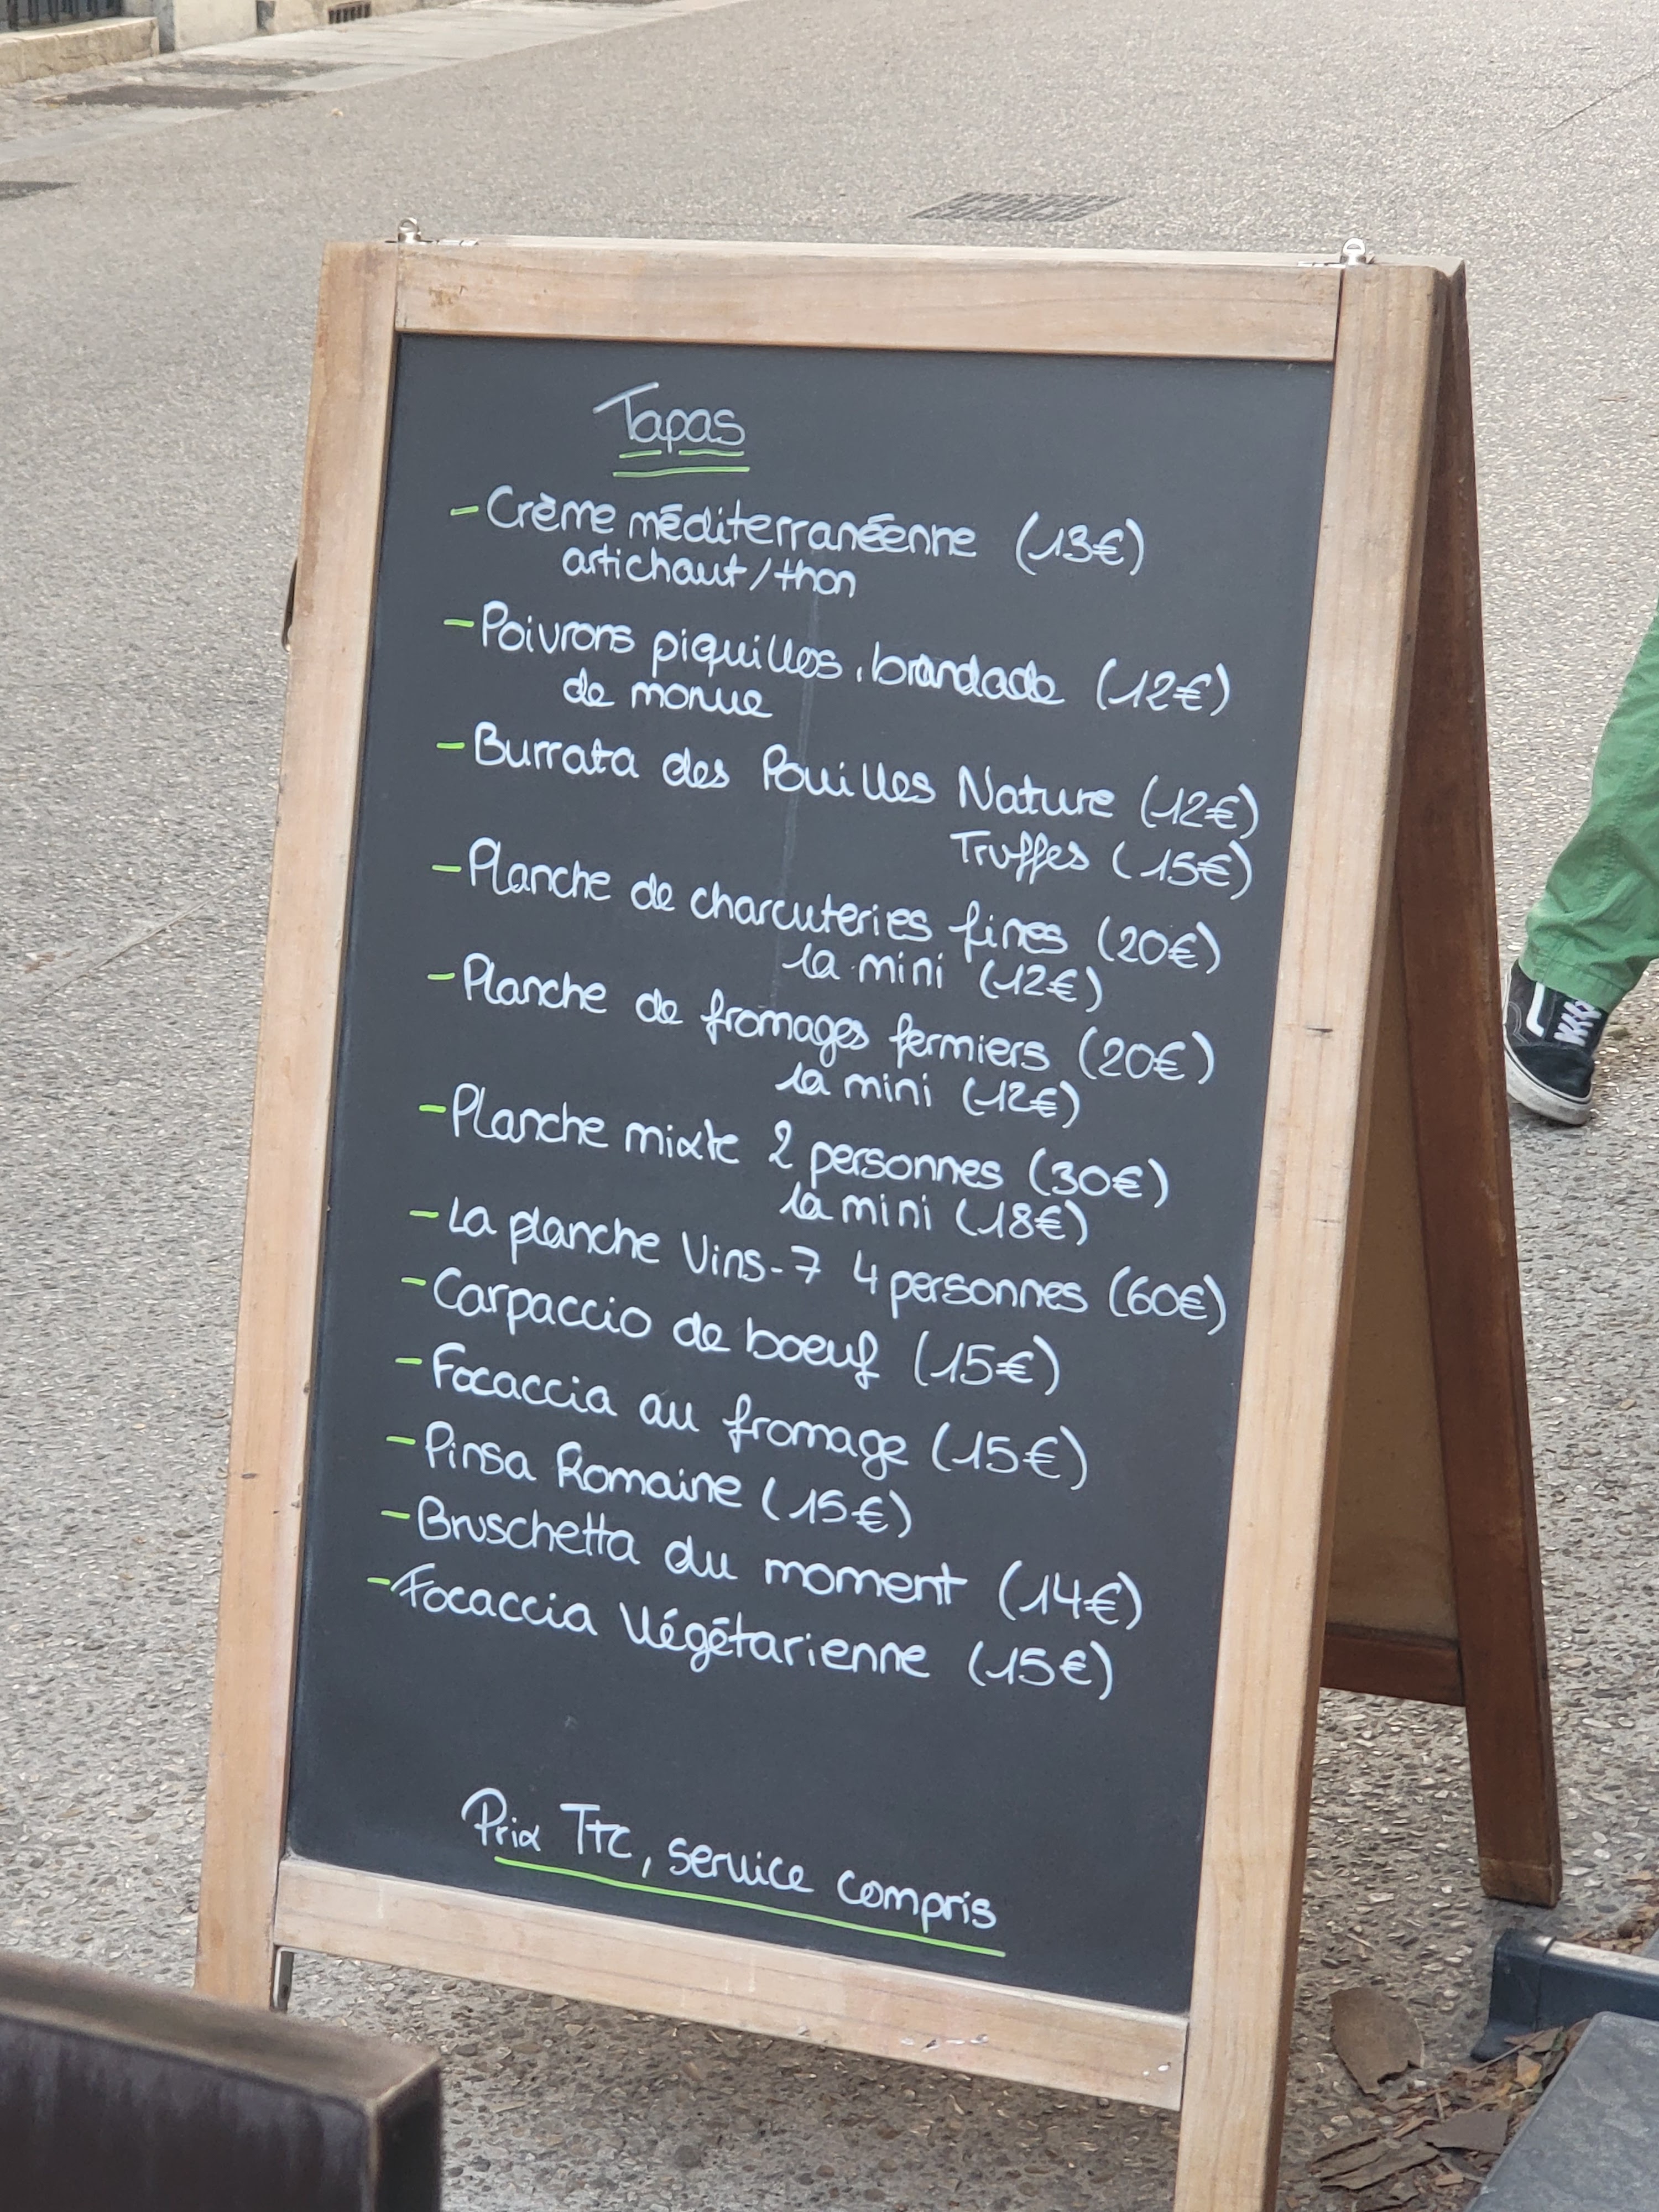 Tapas
- Crème méditerranéenne (13€)
artichaut/thon
- Poivrons piquillos, brandade (12€)
de morue
- Burrata des Pouilles Nature (12€)
Truffes (15€)
- Planche de charcuteries fines (20€)
la mini (12€)
- Planche de fromages fermiers (20€)
la mini (12€)
- Planche mixte 2 personnes (30€)
la mini (18€)
- La planche Vins-7 4 personnes (60€)
- Carpaccio de boeuf (15€)
- Focaccia au fromage (15€)
- Pinsa Romaine (15€)
- Bruschetta du moment (14€)
- Focaccia Végétarienne (15€)
Prix TTC, service compris